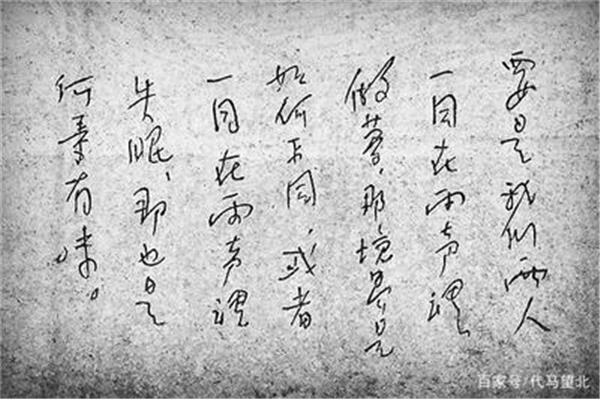 要是我们两人
一同在雨声裡
做夢，那境界是
如何不同，或者
一同在雨声裡
失眠，那也是
何等有味。
百家号/代马望北